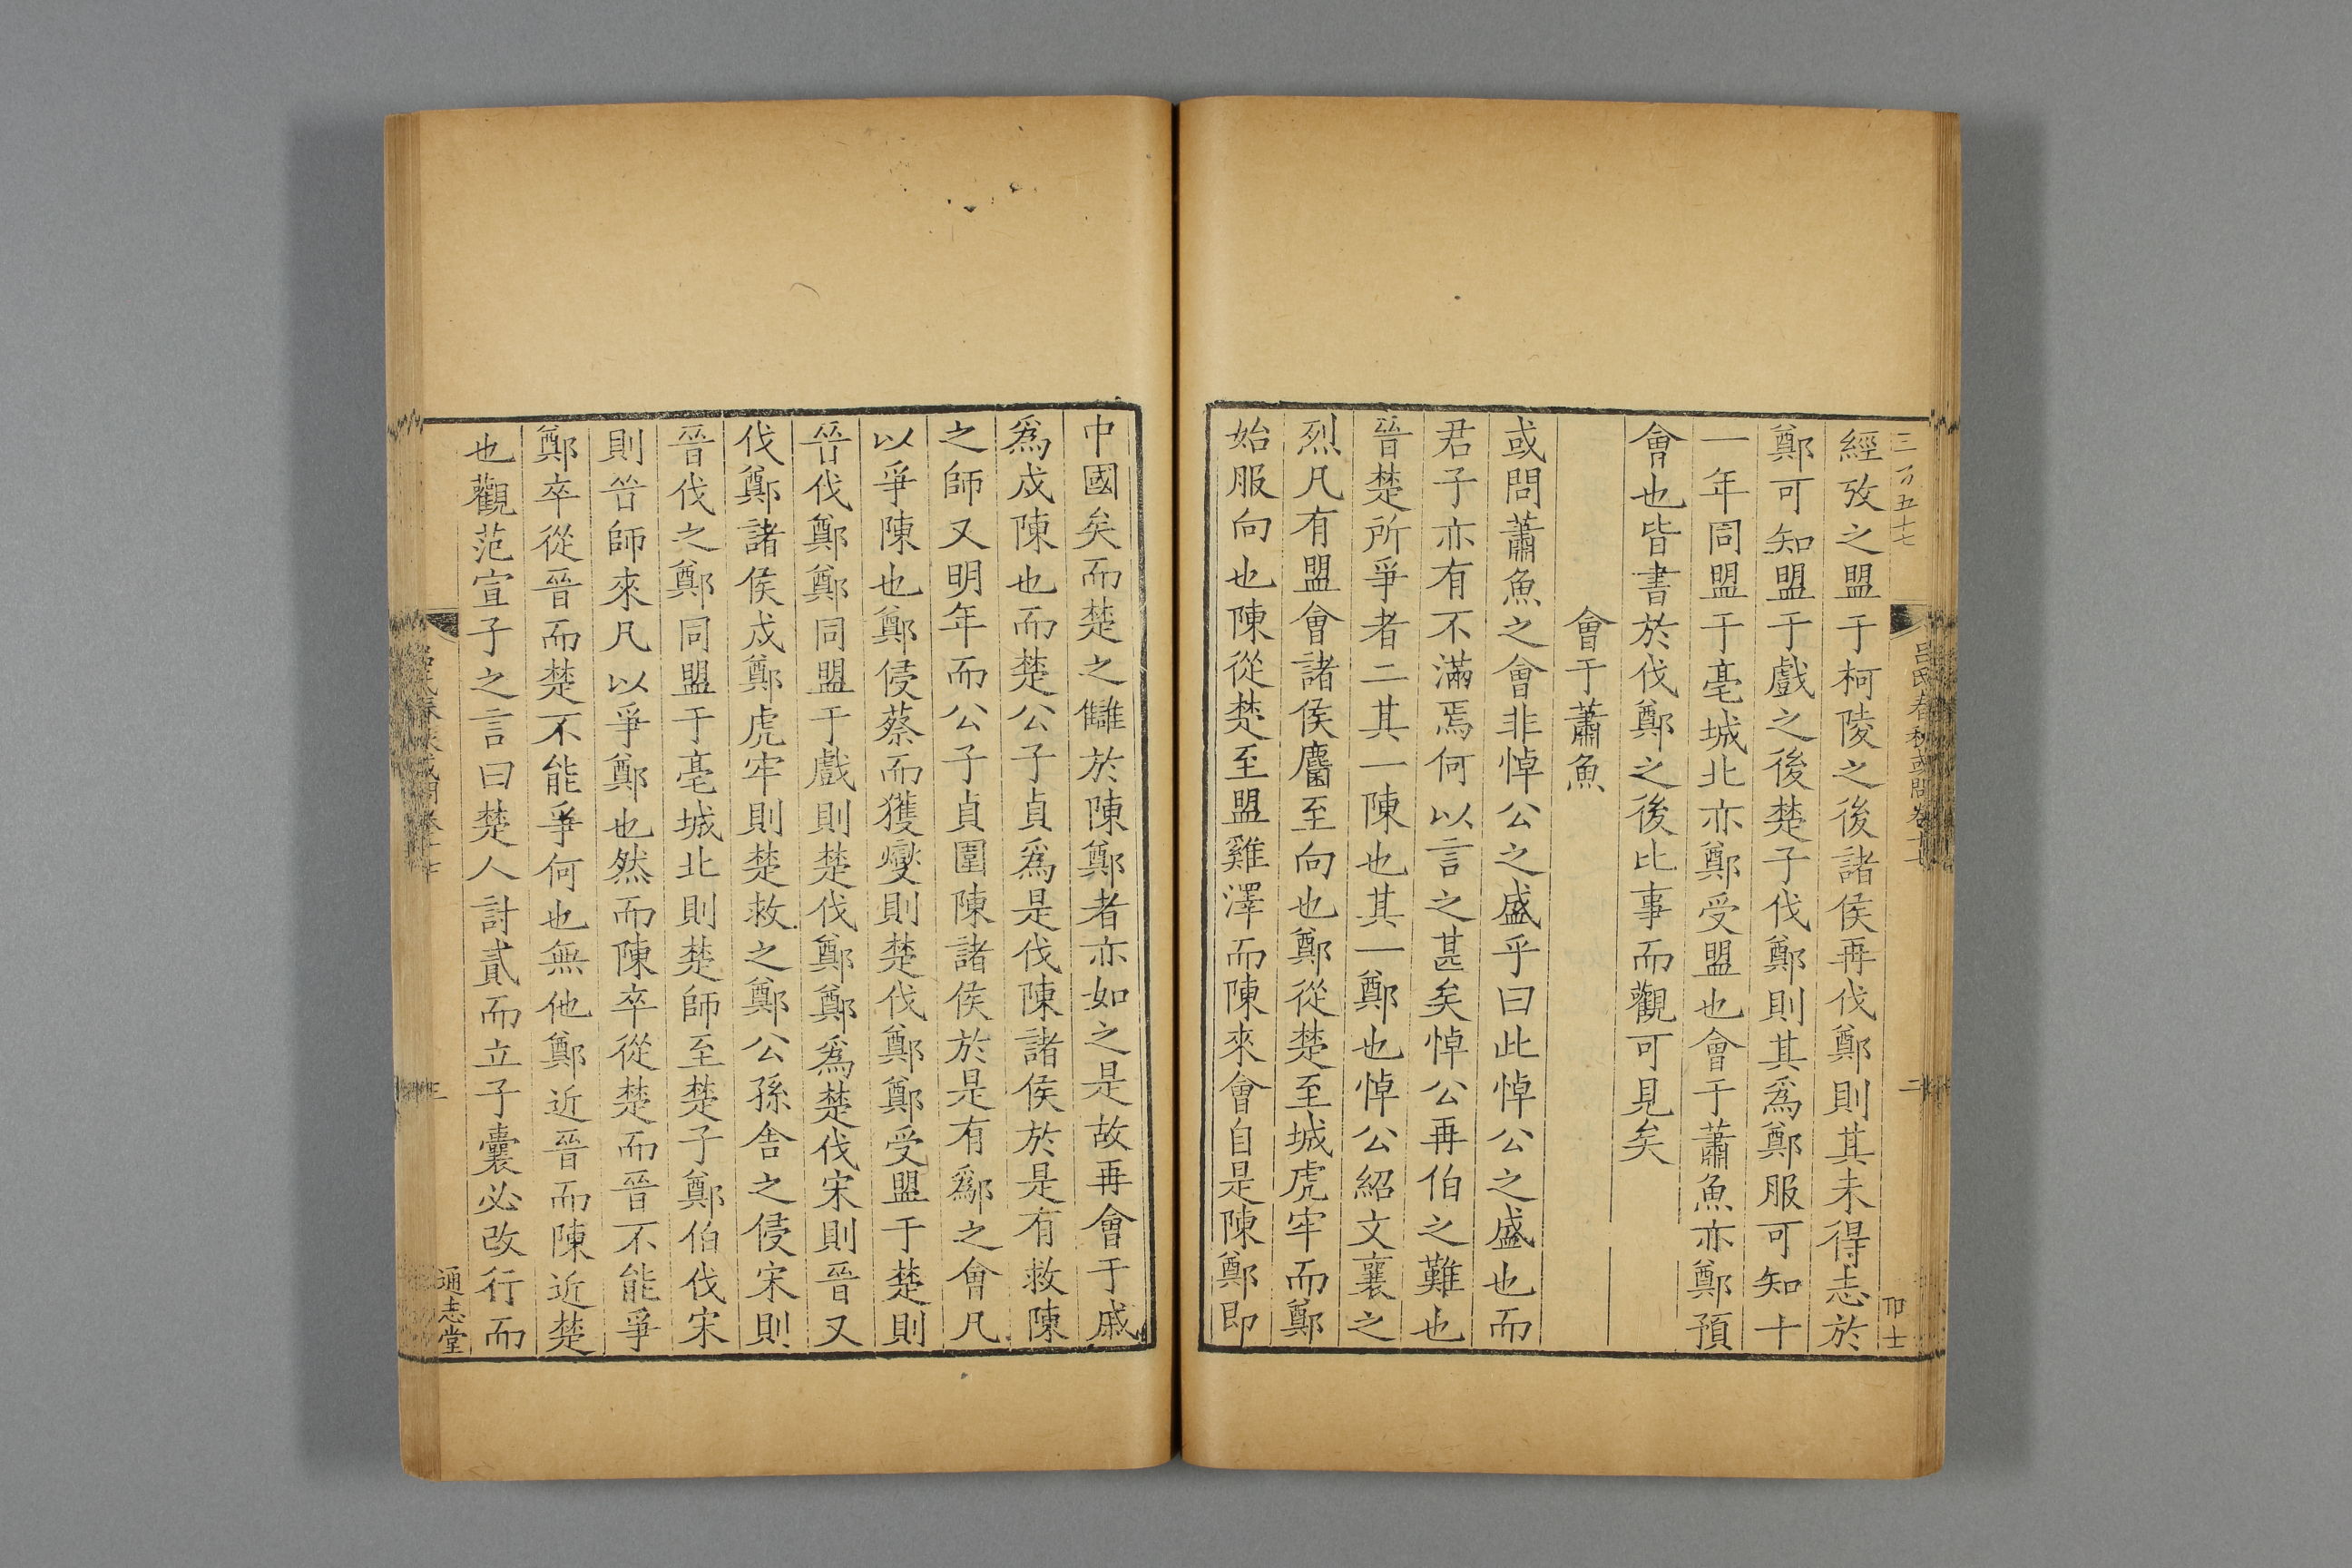 三百五十七
吕氏春秋或問卷十七
二
卬士
經攷之盟于柯陵之後諸侯再伐鄭則其未得志於
鄭可知盟于戲之後楚子伐鄭則其爲鄭服可知十
一年同盟于亳城北亦鄭受盟也會于蕭魚亦鄭預
會也皆書於伐鄭之後比事而觀可見矣
會于蕭魚
或問蕭魚之會非悼公之盛乎曰此悼公之盛也而
君子亦有不滿焉何以言之甚矣悼公再伯之難也
晉楚所爭者二其一陳也其一鄭也悼公紹文襄之
烈凡有盟會諸侯麕至向也鄭從楚至城虎牢而鄭
始服向也陳從楚至盟雞澤而陳來會自是陳鄭即
中國矣而楚之讎於陳鄭者亦如之是故再會于戚
爲戍陳也而楚公子貞爲是伐陳諸侯於是有救陳
之師又明年而公子貞圍陳諸侯於是有鄬之會凡
以爭陳也鄭侵蔡而獲燮則楚伐鄭鄭受盟于楚則
晉伐鄭鄭同盟于戲則楚伐鄭鄭爲楚伐宋則晉又
伐鄭諸侯戍鄭虎牢則楚救之鄭公孫舍之侵宋則
晉伐之鄭同盟于亳城北則楚師至楚子鄭伯伐宋
則晉師來凡以爭鄭也然而陳卒從楚而晉不能爭
鄭卒從晉而楚不能爭何也無他鄭近晉而陳近楚
也觀范宣子之言曰楚人討貳而立子囊必改行而
吕氏春秋或問卷十七
三
通志堂